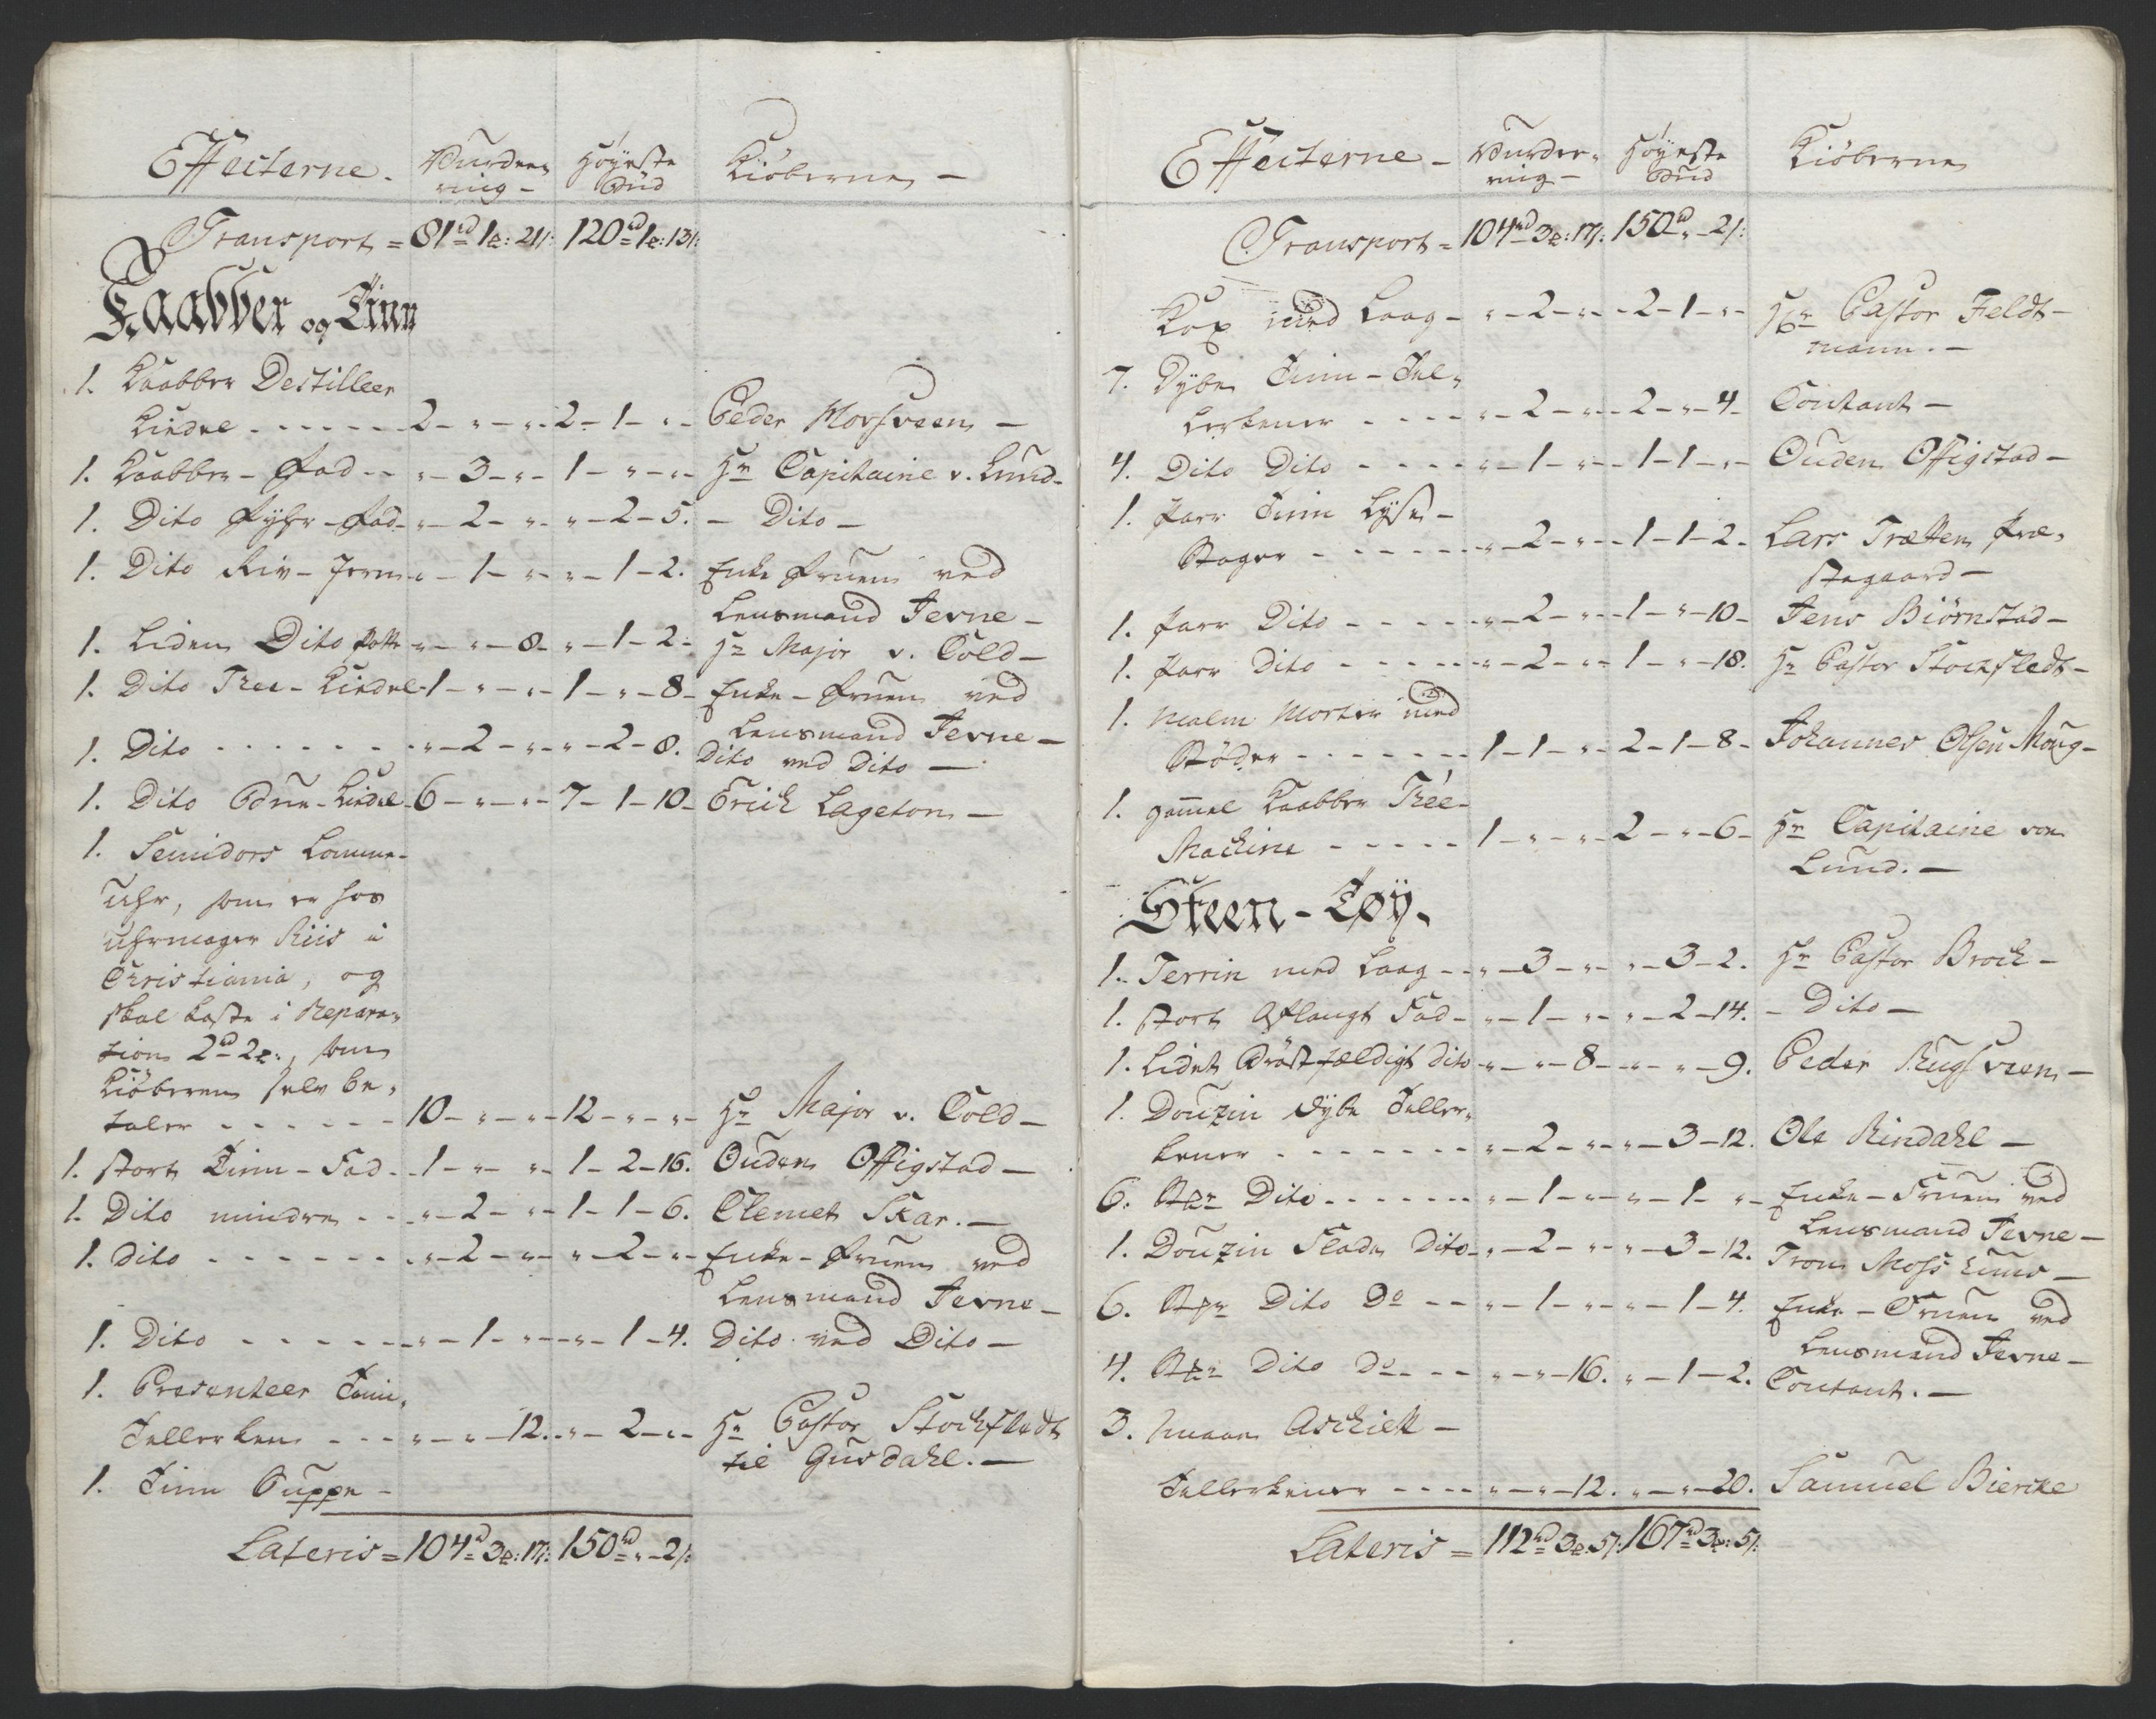 Effecterne. Vurdee- Høyeste Kiöberne –
ring – Bud
Transport = 81rd 1 2: 21 s: 120rd 1 2: 13 s:
Kaabber og Tinn
1. Kaabber Destilleer
Kiedel - - - - - - 2 - " - " - 2 - 1 - " - Peder Morsveen –
1. Kaabber - Fad - - " - 3 - " - 1 - " - " - Hr Capitaine v. Lund –
1. Dito Fyhr - Fad - " - 2 - " - " - 2 - 5. – Dito –
1. Dito Riv - Jern - " - 1 - " - " - 1 - 2. Enke Fruen ved
Lensmand Jevne –
1. Liden Dito Potte " - " - 8 - " - 1 - 2. Hr Major v. Cold –
1. Dito Thee - Kiedel 1 - " - " - 1 - " - 8 - Enke - Fruen ved
Lensmand Jevne –
1. Dito - - - - - - - " - 2 - " - " - 2 - 8. Dito ved Dito –
1. Dito Brue - Kiedel 6 - " - " - 7 - 1 - 10 - Erich Lageton –
1. Semidors Lomme-
Uhr, som er hos
Uhrmager Riis i
Christiania, og
skal koste i Repara-
tion 2rd 2 2:, som
Kiöberen selv be-
taler - - - - - - 10 - " - " - 12 - " - " - Hr Major v. Cold –
1. stort Tinn - Fad - - 1 - " - " - 1 - 2 - 16. Ouden Offigstad –
1. Dito mindre - - - " - 2 - " - 1 - 1 - 6. Clemet Skar. –
1. Dito - - - - - - - " - 2 - " - " - 2 - " - Enke - Fruen ved
Lensmand Jevne –
1. Dito - - - - - - " - 1 - " - " - 1 - 4. Dito ved Dito –
1. Presenteer Tinn-
Tallerken - - - " - " - 12. " - 2 - " - Hr Pastor Stockfledt
til Gusdahl. –
1. Tinn Suppe –
Lateris = 104rd 3 2: 17 s: 150rd " - 2 s:
Effecterne – Vurder- Høyeste Kiöberne
ring – Bud
Transport = 104rd 3 2: 17 s: 150rd " - 2 s:
Kop med Laag - " - 2 - " - 2 - 1 - " - Hr Pastor Feldt-
mann. –
7. Dybe Tinn - Tal-
lerkener - - - - " - 2 - " - 2 - " - 4 - Contant –
4. Dito Dito - - - - " - 1 - " - 1 - 1 - " - Ouden Offigstad –
1. Parr Tinn Lyse-
Stager - - - - - - " - 2 - " - 1 - 1 - 2 - Lars Trætten Præ-
stegaard –
1. Parr Dito - - - - - " - 2 - " - 1 - " - 10 - Jens Biörnstad –
1. Parr Dito - - - - - " - 2 - " - 1 - " - 18. Hr Pastor Stockfledt –
1. Malm Morter med
Stöder - - - - - - - 1 - 1 - " - 2 - 1 - 8 - Johannes Olsen Moug –
1. gammel Kaabber Thee-
Machine - - - - - 1 - " - " - 2 - " - 6 - Hr Capitaine von
Lund. –
Steen - Tøy.
1. Terrin med Laag - - " - 3 - " - " - 3 - 2. Hr Pastor Broch –
1. stort Aflangt Fad - " - 1 - " - " - 2 - 14. – Dito –
1. Lidet Bröstfældigt dito - " - " - 8 - " - " - 9. Peder Rugsveen –
1. Douzin dybe Taller-
kener - - - - - - - " - 2 - " - " - 3 - 12. Ole Rindahl –
6. Stkr Dito - - - - - - " - 1 - " - " - 1 - " - Enke - Fruen ved
Lensmand Jevne –
1. Douzin Flade Dito - " - 2 - " - " - 3 - 12. Tron Moss Eune –
6. Stkr Dito Do - - " - 1 - " - " - 1 - 4. Enke - Fruen ved
Lensmand Jevne –
4. Stkr Dito Do - - - " - " - 16. " - 1 - 2. Contant. –
3. smaae Aschiett –
Tallerkener - - - - " - " - 12. " - " - 20. Samuel Biercke
Lateris = 112rd 3 2: 5 s: 167rd 3 2: 5 s: